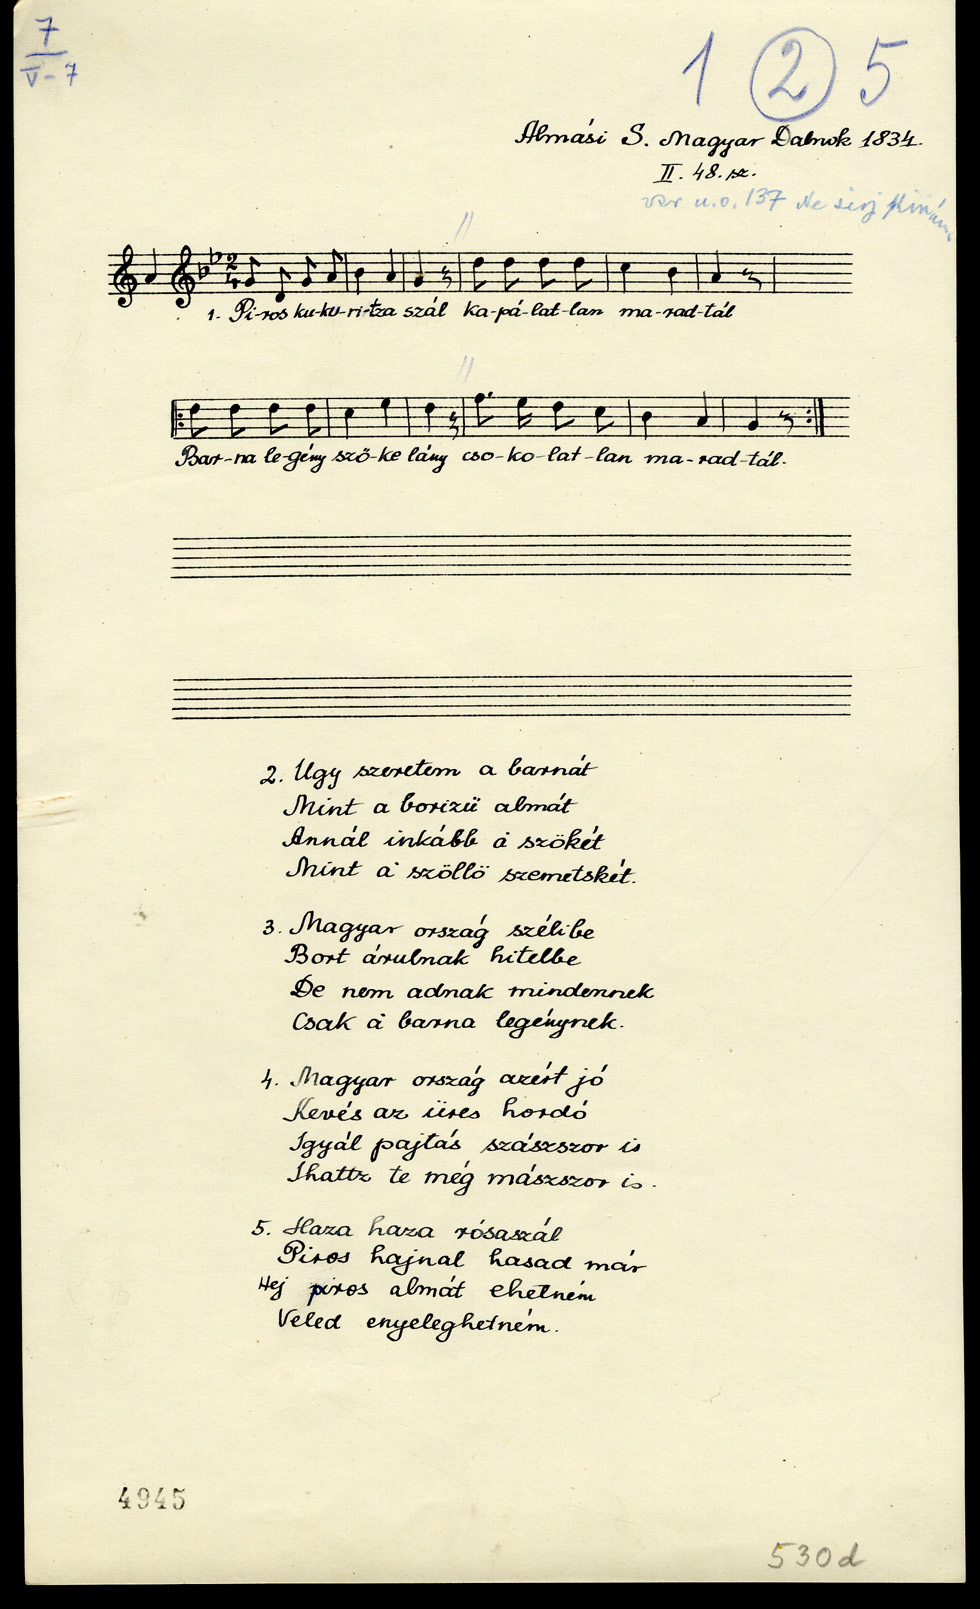 7
V-7
1 2 5
Almási S. Magyar Dalnok 1834.
II. 48. sz.
var u.o. 137 Ne sirj
1. Pi-ros ku-ku-ri-tza szál ka-pá-lat-lan ma-rad-tál
Bar-na le-gény sző-ke lány cso-ko-lat-lan ma-rad-tál.
2. Ugy szeretem a barnát
Mint a borizü almát
Annál inkább a' szökét
Mint a' szöllö szemetskét.
3. Magyar ország szélibe
Bort árulnak hitelbe
De nem adnak mindennek
Csak a' barna legénynek.
4. Magyar ország azért jó
Kevés az üres hordó
Igyál pajtás szászszor is
Ihattz te még mászszor is.
5. Haza haza rósaszál
Piros hajnal hasad már
Hej piros almát ehetném
Veled enyeleghetném.
4945
530d